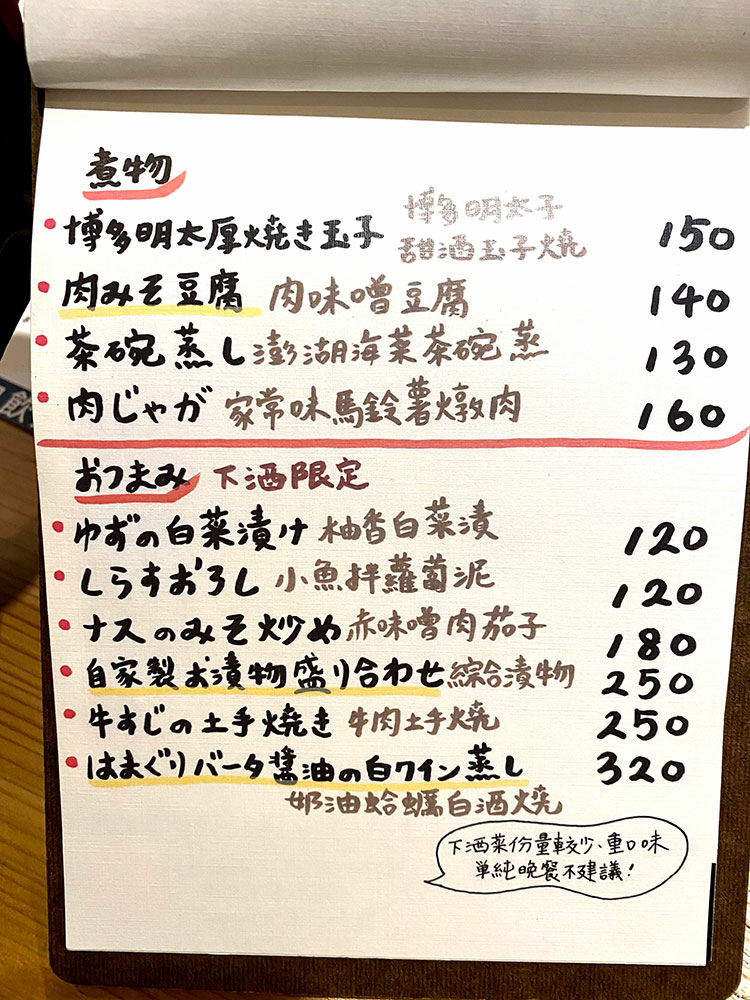 煮物
博多明太厚焼き玉子 博多明太子
甜酒玉子燒 150
肉みそ豆腐 肉味噌豆腐 140
茶碗蒸し 澎湖海菜茶碗蒸 130
肉じゃが 家常味馬鈴薯燉肉 160
おつまみ 下酒限定
ゆずの白菜漬け 柚香白菜漬 120
しらすおろし 小魚拌蘿蔔泥 120
ナスのみそ炒め 赤味噌肉茄子 180
自家製お漬物盛り合わせ 綜合漬物 250
牛すじの土手焼き 牛肉土手燒 250
はまぐりバータ醬油の白ワイン蒸し 320
奶油蛤蠣白酒燒
下酒菜份量較少、重口味
單純晚餐不建議!